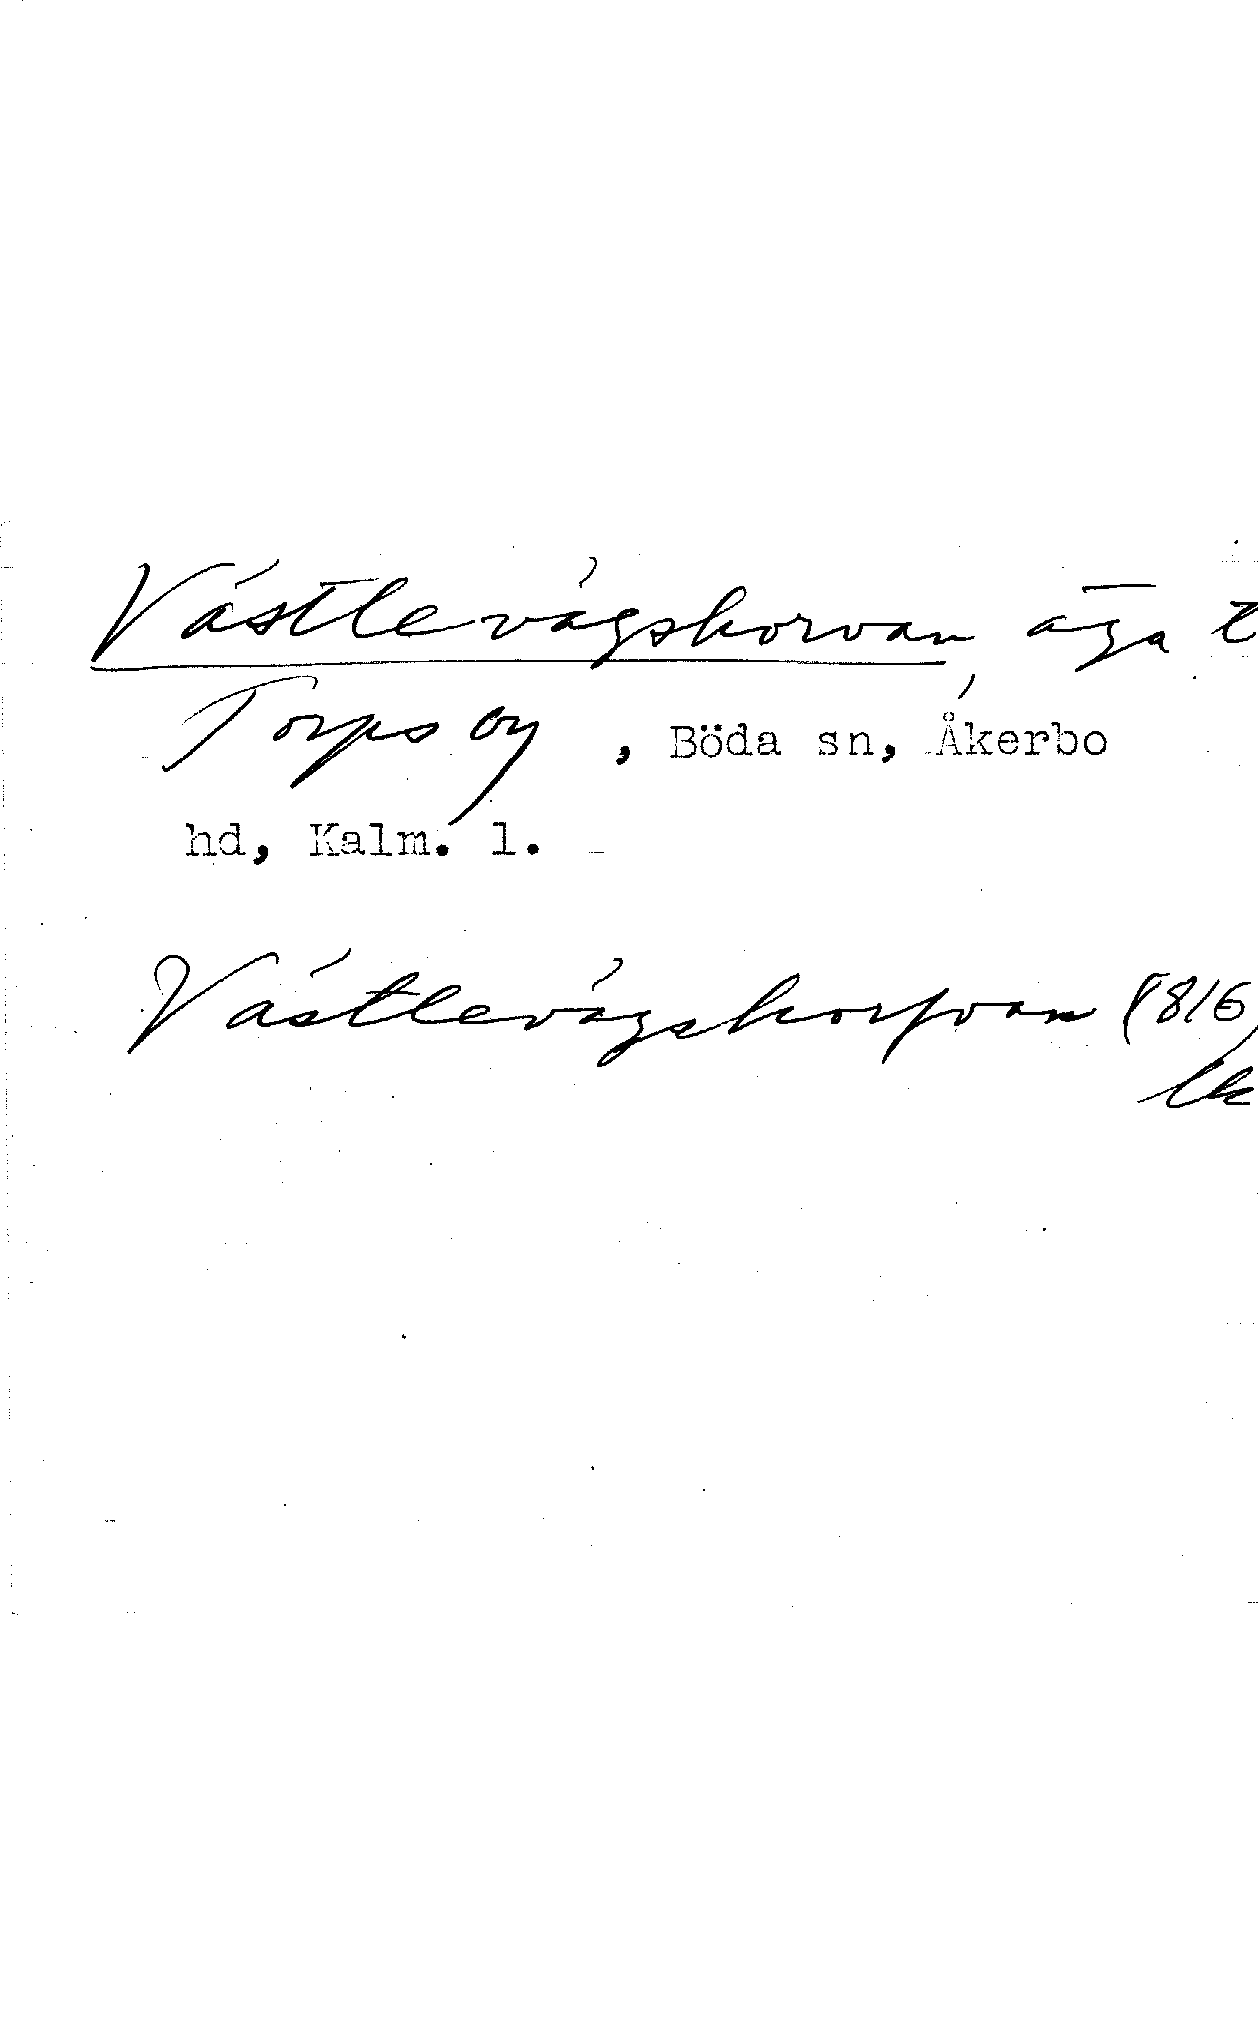 Västlevägskorvan, äga t
Torps by, Böda sn, Åkerbo
hd, Kalm. l.
Västlevägskorfvan 1816
lk